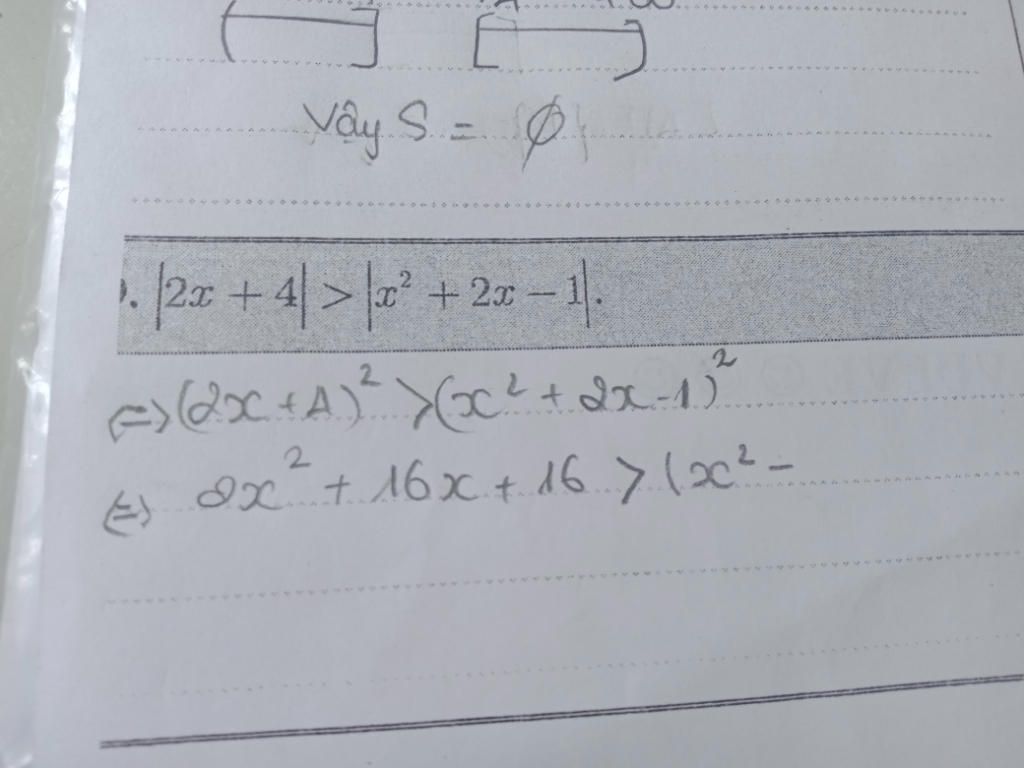 Vậy S = ∅
. |2x + 4| > |x² + 2x − 1|.
⇔ (2x + 4)² > (x² + 2x - 1)²
⇔ 2x² + 16x + 16 > (x² -